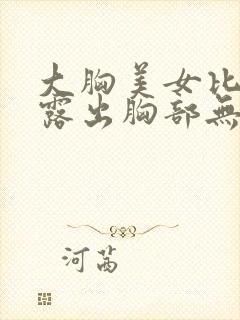 大胸美女比
露出胸部無
河茜